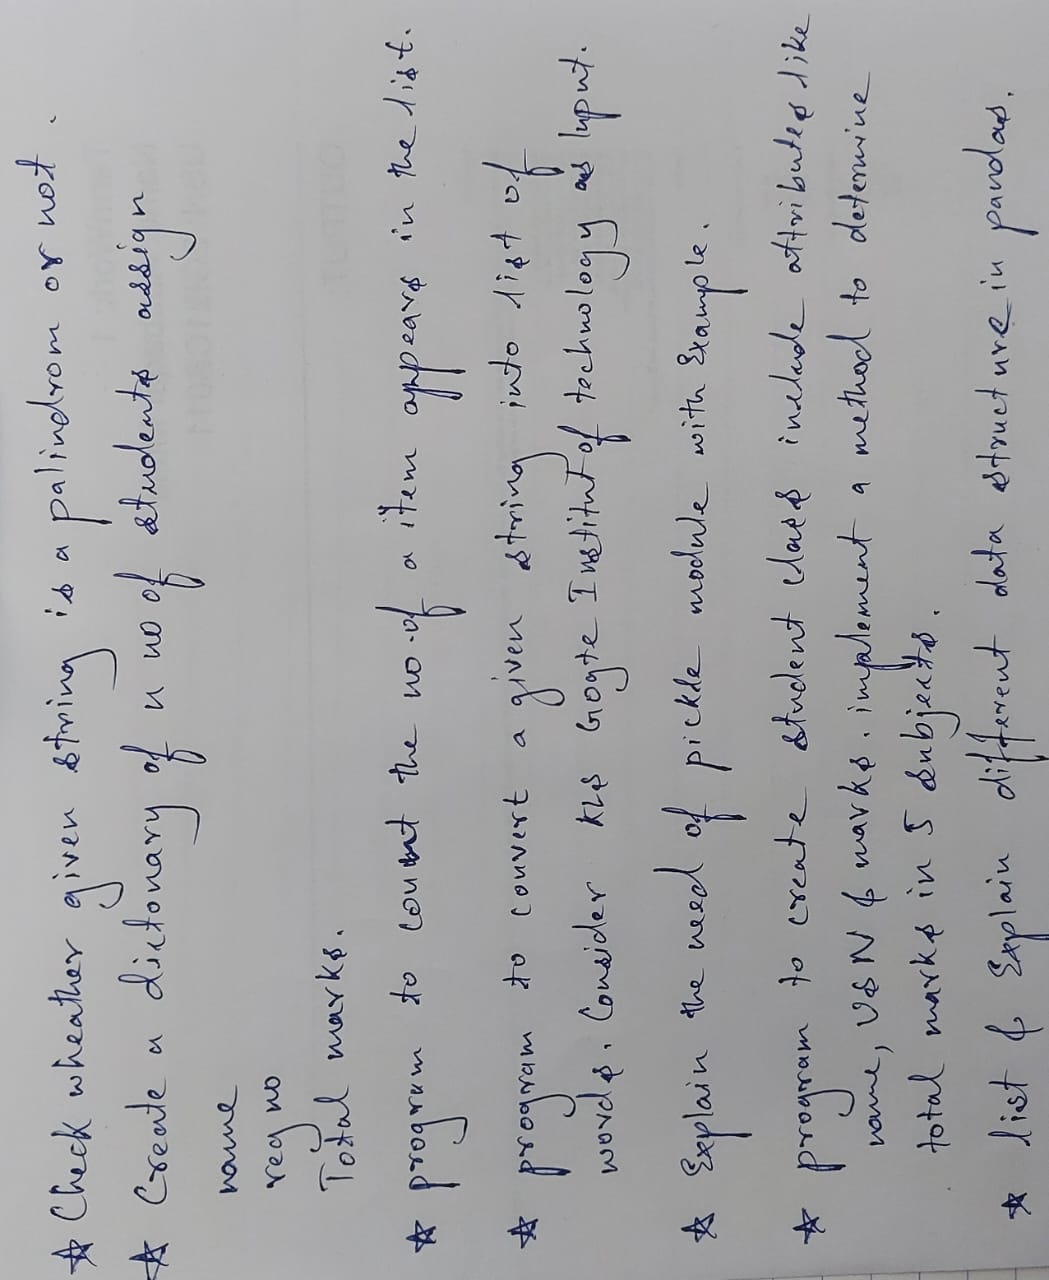 ☆ Check wheather given string is a palindrom or not.
☆ Create a dictonary of n no of students assign
name
reg no
Total marks.
☆ program to count the no. of a item appears in the list.
☆ program to convert a given string into list of
words. Consider KLS Gogte Institut of technology as Input.
☆ Explain the need of pickle module with Example.
☆ program to create student class include attributes like
name, USN & marks. implement a method to determine
total marks in 5 subjects.
☆ list & Explain different data structure in pandas.